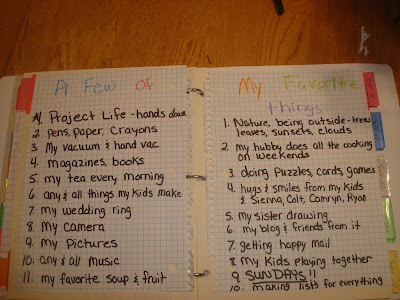 A Few Of
1. Project Life - hands down
2. pens, paper, crayons
3. My vacuum & hand vac
4. magazines, books
5. my tea every morning
6. any & all things my kids make
7. my wedding ring
8. My camera
9. my Pictures
10. any & all music
11. my favorite soup & fruit
My Favorite
things
1. Nature, being outside - trees
leaves, sunsets, clouds
2. my hubby does all the cooking
on weekends
3. doing puzzles, cards, games
4. hugs & smiles from my kids
& Sienna, Colt, Camryn, Ryan
5. my sister drawing
6. my blog & friends from it
7. getting happy mail
8. My Kids playing together
9. SUNDAYS!!
10. making lists for everything